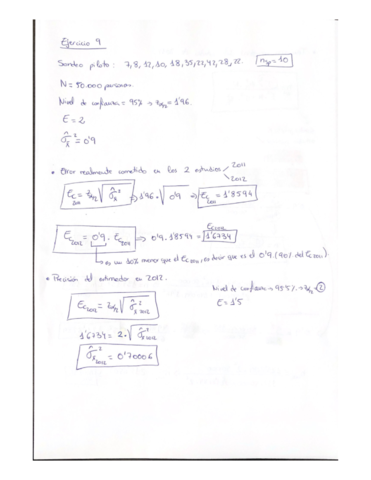 Ejercicio 9
Sondeo piloto: 7, 8, 12, 10, 18, 35, 22, 42, 28, 22. np = 10
N = 50.000 personas.
Nivel de confianza = 95% → zα/2 = 1'96.
E = 2
σ̂x̂² = 0'9
• Error realmente cometido en los 2 estudios 2011
2012
Ec 2011 = zα/2 √σ̂x̂² ⇒ 1'96 · √0'9 ⇒ Ec 2011 = 1'8594
Ec 2012 = 0'9 · Ec 2011 ⇒ 0'9 · 1'8594 = 1'6734
→ es un 10% menor que el Ec 2011, es decir que es el 0'9 (90% del Ec 2011)
• Precisión del estimador en 2012.
Ec 2012 = zα/2 √σ̂x̂² 2012
Nivel de confianza → 95'5% → zα/2 = 2
E = 1'5
1'6734 = 2 · √σ̂x̂² 2012
σ̂x̂² 2012 = 0'70006